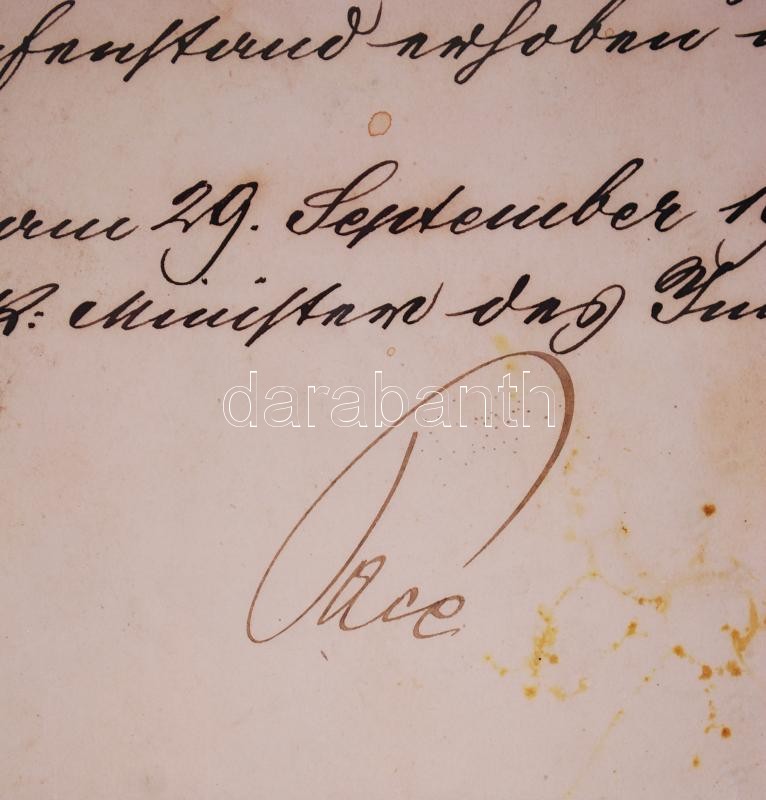 fenstand erhoben
am 29. September 19
K: Minister des Inn
darabanth
Pace